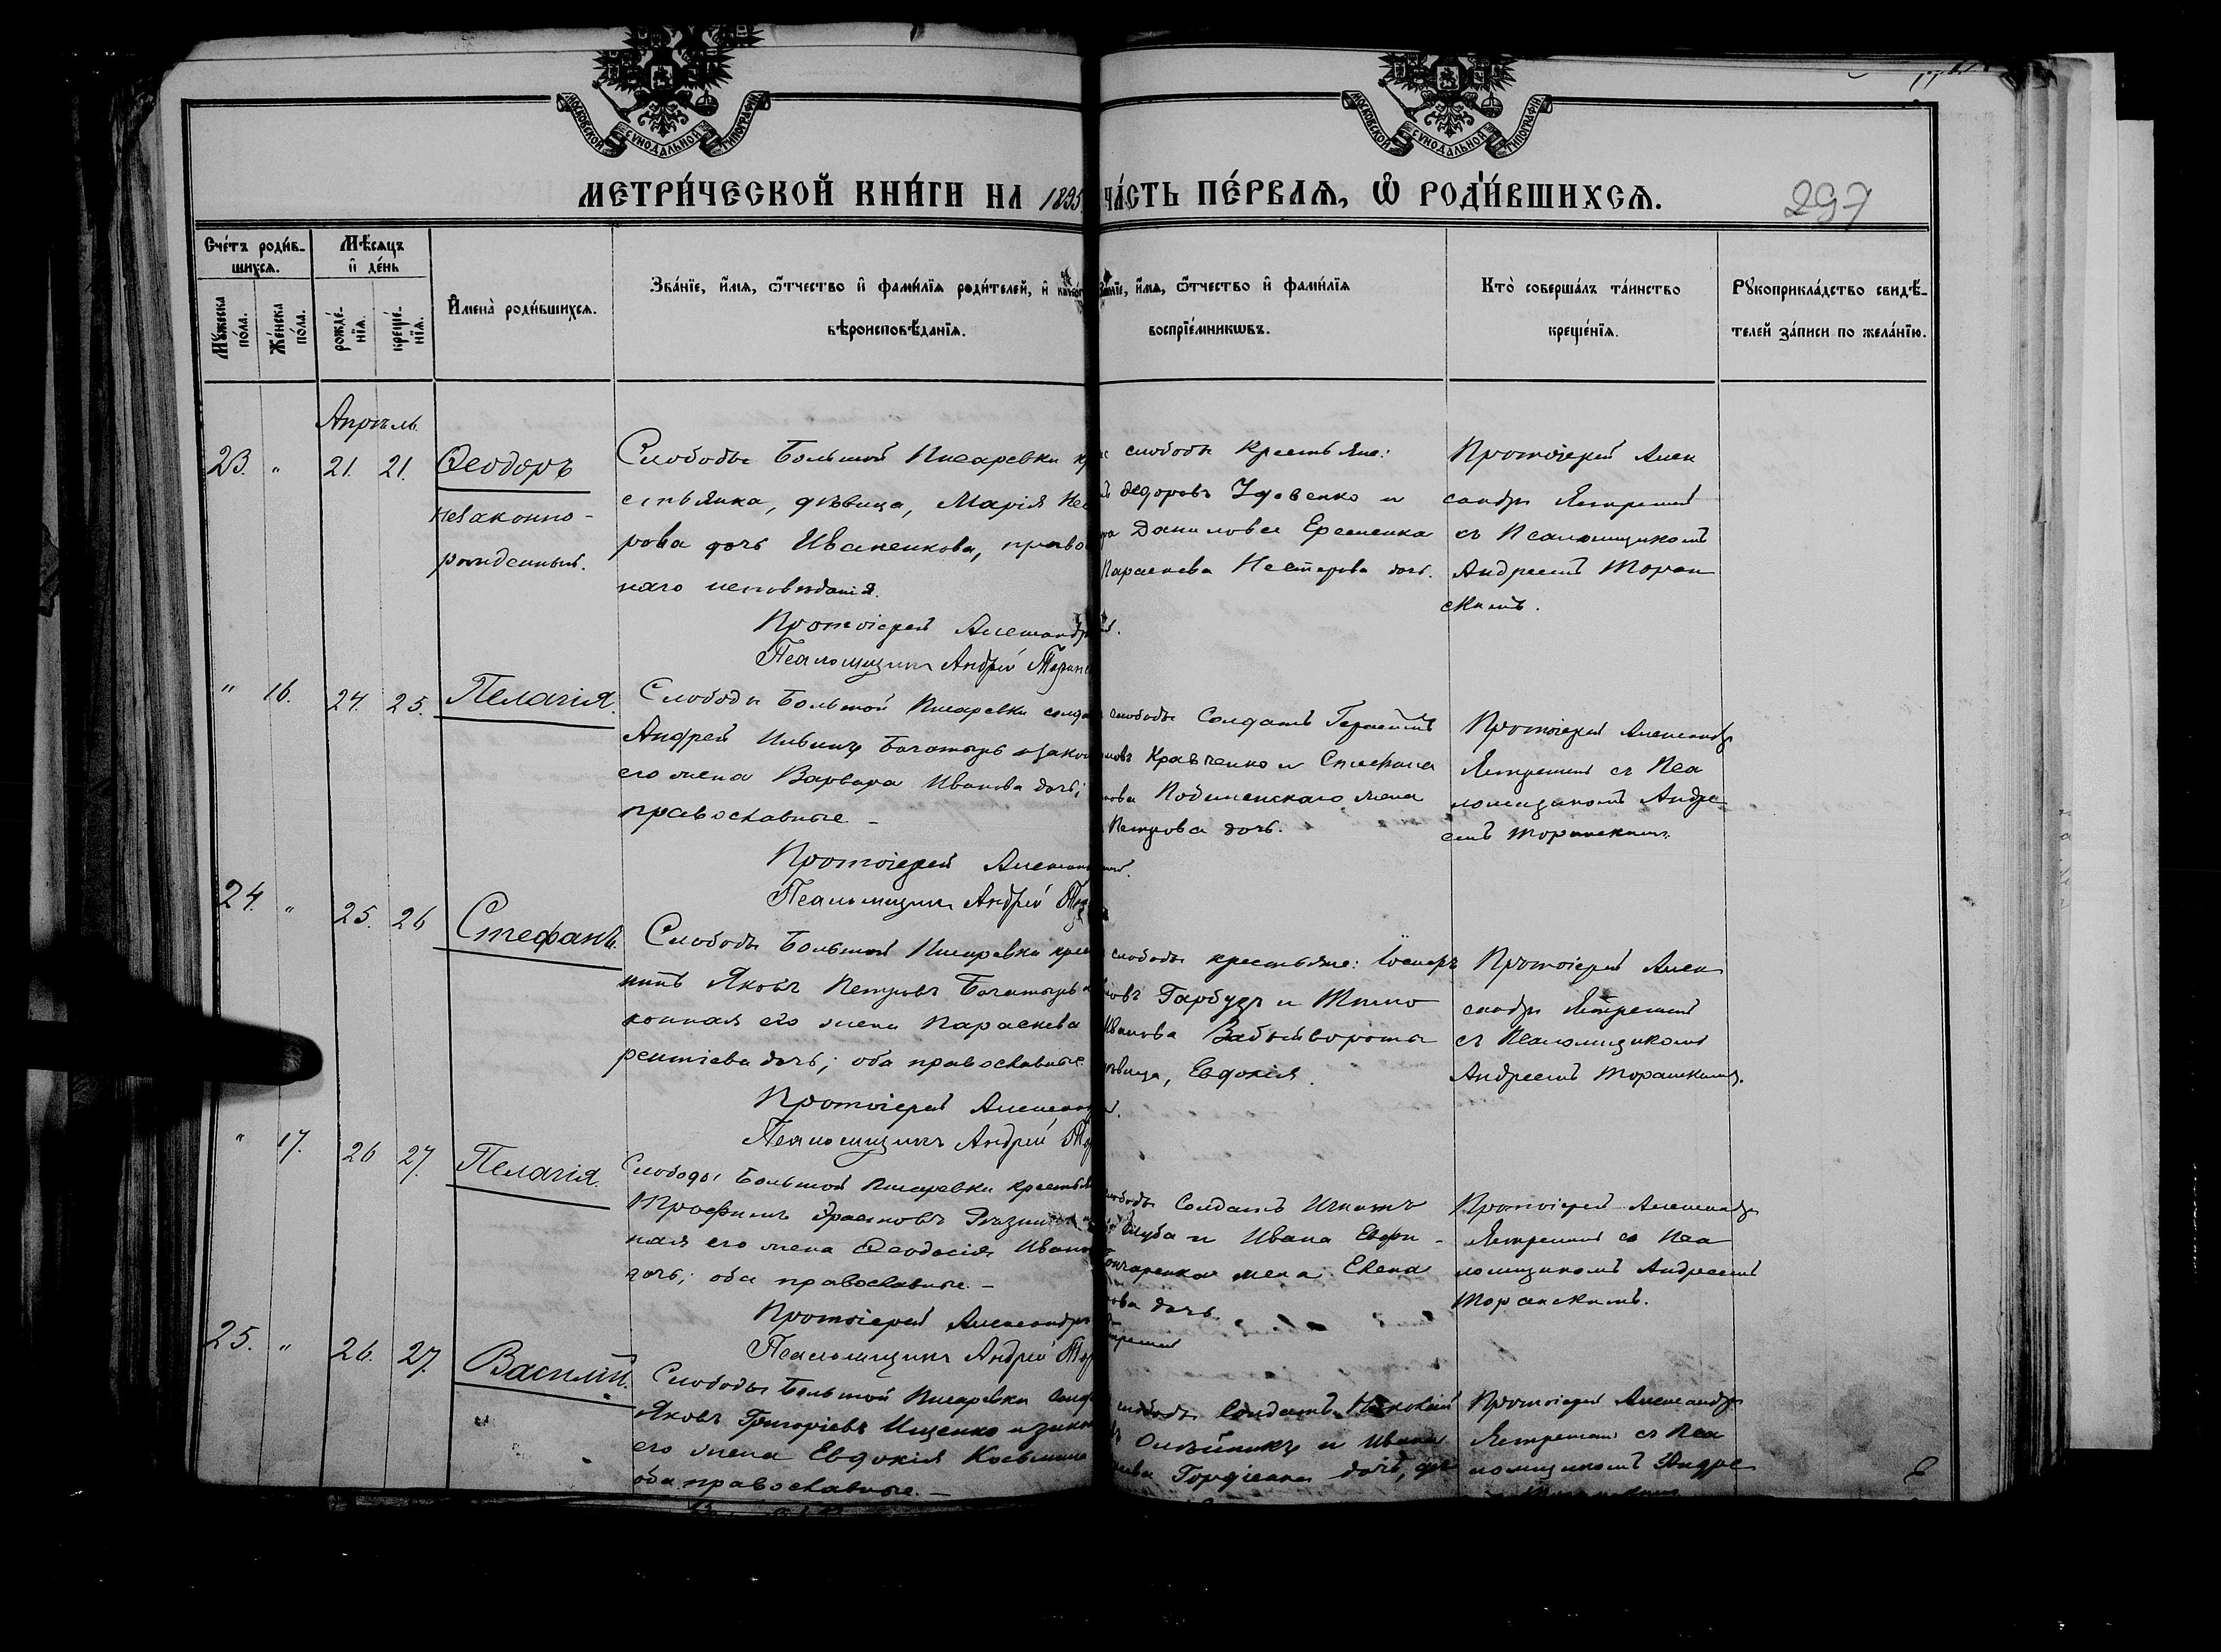 МОСКОВСКОЙ СѴНОДАЛЬНОЙ ТИПОГРАФІИ
МОСКОВСКОЙ СѴНОДАЛЬНОЙ ТИПОГРАФІИ
МЕТРИ́ЧЕСКОЙ КНИ́ГИ НА 1895
ЧА́СТЬ ПЕ́РВАѦ, Ѡ РОДИ́ВШИХСѦ.
297
Счéтъ роди́в-
шихсѧ.
Мѣ́сѧцъ
и҆ дéнь
Мꙋ́жеска
по́ла.
Жéнска
по́ла.
рождé-
нїѧ.
крещé-
нїѧ.
И҆мена̀ роди́вшихсѧ.
Зва́нїе, и҆́мѧ, ѻ҆́тчество и҆ фами́лїѧ роди́телей, и҆
вѣроисповѣ́данїѧ.
и҆́мѧ, ѻ҆́тчество и҆ фами́лїѧ
воспрїéмникѡвъ.
Кто̀ соверша́лъ та́инство
крещéнїѧ.
Рꙋкоприкла́дство свидѣ́-
телей за́писи по жела́нїю.
Апрѣль
23. " 21. 21. Ѳеодоръ
незаконно-
рожденный.
Слободы Большой Писаревки кр
естьянка, дѣвица, Марія Нес
рова дочь Иваненкова, право
наго исповѣданія.
Протоіерей Александръ
Псаломщикъ Андрей Торанс
слободы крестьяне:
Ѳедоровъ Удовенко и
Данилова Еременка
Параскева Нестерова дочь.
Протоіерей Алек
сандръ Ястремскій
съ Псаломщикомъ
Андреемъ Торан
скимъ.
" 16. 24. 25. Пелагія.
Слободы Большой Писаревки солда
Андрей Ильинъ Богатырь и закон
его жена Варвара Иванова дочь;
православные. -
Протоіерей Александ
Псаломщикъ Андрей Тор
слободы Солдатъ Герасимъ
Кравченко и Стефана
жена
Петрова дочь.
Протоіерей Александръ
Ястремскій съ Пса
ломщикомъ Андре
емъ Торанскимъ.
24. " 25. 26 Стефанъ.
Слободы Большой Писаревки крес
нинъ Яковъ Петровъ Богатырь и
конная его жена Параскева
рентіева дочь; оба православные.
Протоіерей Александ
Псаломщикъ Андрей Тор
слободы крестьяне: Іосифъ
овъ Гарбузъ и Тимо
Иванова Забейворота
дѣвица, Евдокія.
Протоіерей Алек
сандръ Ястремскій
съ Псаломщикомъ
Андреемъ Торанскимъ.
" 17. 26 27. Пелагія.
Слободы Большой Писаревки крестьян
Трофимъ
ная его жена Ѳеодосія Ивано
дочь; оба православные. -
Протоіерей Александръ
Псаломщикъ Андрей Тор
слободы Солдатъ Игнатъ
и Ивана Евфи-
Гончаренка жена Елена
ова дочь.
Протоіерей Александръ
Ястремскій со Пса
ломщикомъ Андреемъ
Торанскимъ.
25. " 26. 27. Василій.
Слободы Большой Писаревки солд
Яковъ Григорьевъ Ищенко и закон
его жена Евдокія Косьмина
оба православные. -
слободы Солдатъ
Олейникъ и Ивана
дочь, дѣ
Протоіерей Александръ
Ястремскій съ Пса
ломщикомъ Андре